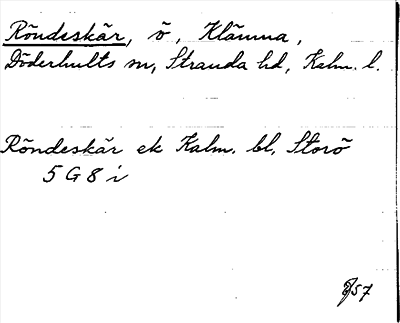 Röndeskär, ö, Klämna,
Döderhults sn, Stranda hd, Kalm. l.
Röndeskär ek Kalm. bl, Storö
5 G 8 i
57